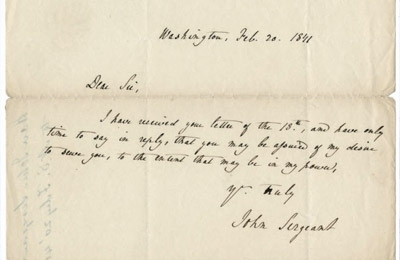 Washington, Feb. 20. 1841
Dear Sir,
I have received your letter of the 18th, and have only
time to say in reply, that you may be assured of my desire
to serve you, to the extent that may be in my power,
Yr. truly
John Sergeant